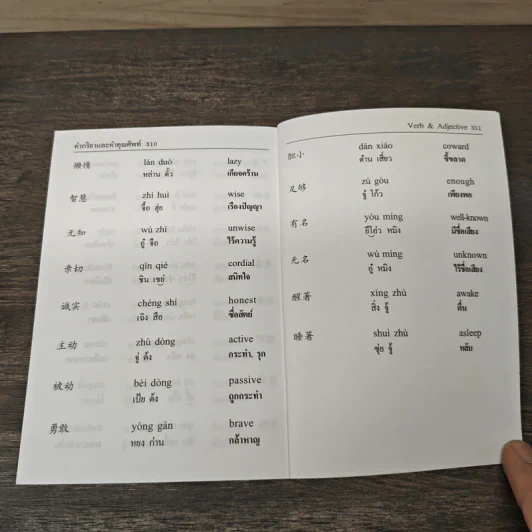 คำกริยาและคำคุณศัพท์ 310
懒惰 lǎn duò lazy
หล่าน ตั้ว เกียจคร้าน
智慧 zhì huì wise
จื้อ ฮุ่ย เรืองปัญญา
无知 wú zhī unwise
อู๋ จือ ไร้ความรู้
亲切 qīn qiè cordial
ชิน เชย่ สนิทใจ
诚实 chéng shí honest
เฉิง สือ ซื่อสัตย์
主动 zhǔ dòng active
จู่ ต้ง กระทำ, รุก
被动 bèi dòng passive
เป้ย ต้ง ถูกกระทำ
勇敢 yóng gǎn brave
หยง ก่าน กล้าหาญ
Verb & Adjective 311
胆小 dǎn xiǎo coward
ต๋าน เสี่ยว ขี้ขลาด
足够 zú gòu enough
จู๋ โก้ว เพียงพอ
有名 yǒu míng well-known
อิ่โย่ว หมิง มีชื่อเสียง
无名 wú míng unknown
อู๋ หมิง ไร้ชื่อเสียง
醒著 xǐng zhù awake
สิ่ง จู้ ตื่น
睡著 shuì zhù asleep
ซุ่ย จู้ หลับ